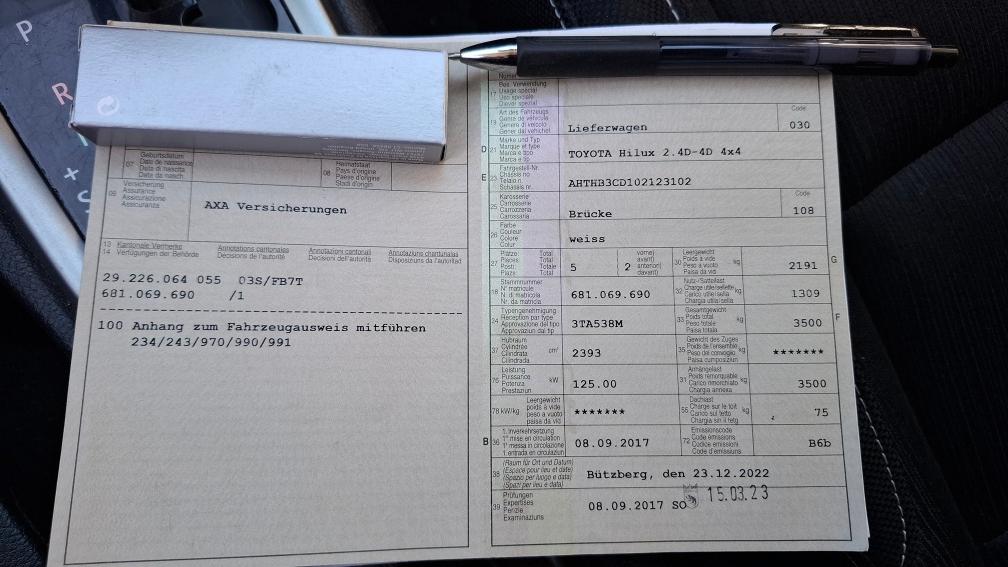 P
R
Geburtsdatum
Date de naissance
Data di nascita
Data da nasch.
07
Heimatstaat
Pays d'origine
Paese d'origine
Stadi d'origin
08
09
Versicherung
Assurance
Assicurazione
Assicuranza
AXA Versicherungen
13 Kantonale Vermerke
14 Verfügungen der Behörde
Annotations cantonales
Décisions de l'autorité
Annotazioni cantonali
Decisioni dell'autorità
Annotaziuns chantunalas
Disposiziuns da l'autoritad
29.226.064 055 03S/FB7T
681.069.690 /1
100 Anhang zum Fahrzeugausweis mitführen
234/243/970/990/991
17
Bes. Verwendung
Usage spécial
Uso speciale
Diever spezial
19
Art des Fahrzeugs
Genre de véhicule
Genere di veicolo
Gener dal vehichel
Lieferwagen
Code
030
D 21
Marke und Typ
Marque et type
Marca e tipo
Marca e tip
TOYOTA Hilux 2.4D-4D 4x4
E 23
Fahrgestell-Nr.
Châssis no
Telaio n.
Schassis nr.
AHTHB3CD102123102
25
Karosserie
Carrosserie
Carrozzeria
Carossaria
Brücke
Code
108
26
Farbe
Couleur
Colore
Colur
weiss
27
Plätze: Total
Places: Total
Posti: Totale
Plazs: Total
5
vorne)
avant)
anteriori)
davant)
2
30
Leergewicht
Poids à vide
Peso a vuoto
Paisa da vid
kg
2191
G
18
Stammnummer
N° matricule
N. di matricola
Nr. da matricla
681.069.690
32
Nutz-/Sattellast
Charge utile/sellette
Carico utile/sella
Chargia utila/sella
kg
1309
24
Typengenehmigung
Réception par type
Approvazione del tipo
Approvaziun dal tip
3TA538M
33
Gesamtgewicht
Poids total
Peso totale
Paisa totala
kg
3500
F
37
Hubraum
Cylindrée
Cilindrata
Cilindrada
cm³
2393
35
Gewicht des Zuges
Poids de l'ensemble
Peso del convoglio
Paisa cumposiziun
kg
*******
76
Leistung
Puissance
Potenza
Prestaziun
kW
125.00
31
Anhängelast
Poids remorquable
Carico rimorchiato
Chargia annexa
kg
3500
78 kW/kg
Leergewicht
poids à vide
peso a vuoto
paisa da vid
*******
55
Dachlast
Charge sur le toit
Carico sul tetto
Chargia sin il tetg
kg
75
B 36
1. Inverkehrsetzung
1re mise en circulation
1a messa in circolazione
1. entrada en circulaziun
08.09.2017
72
Emissionscode
Code émissions
Codice emissioni
Code d'emissiuns
B6b
38
(Raum für Ort und Datum)
(Espace pour lieu et date)
(Spazio per luogo e data)
(Spazi per lieu e data)
Bützberg, den 23.12.2022
39
Prüfungen
Expertises
Perizie
Examinaziuns
08.09.2017 SO
15.03.23